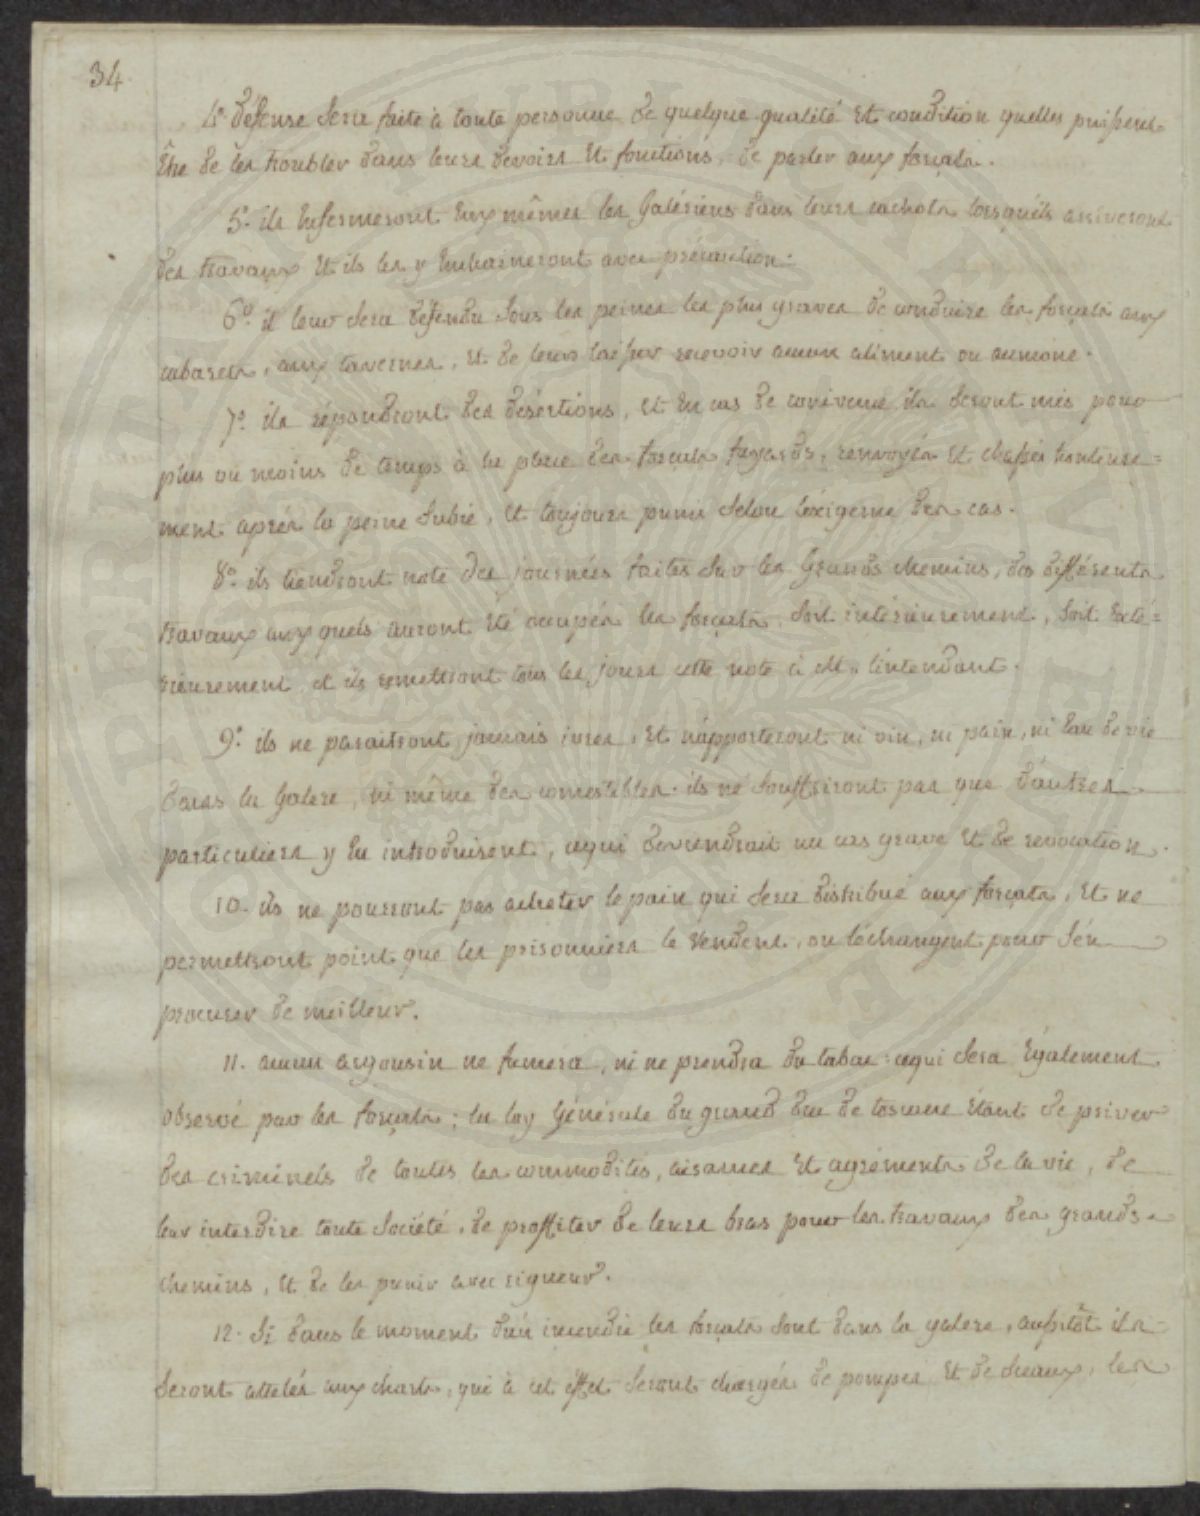 34
4.° défense sera faite à toute personne de quelque qualité et condition quelles puissent
être de les troubler dans leurs devoirs et fonctions, de parler aux forçats.
5.° ils enfermeront eux mêmes les galériens dans leurs cachots lorsqu'ils arriveront
des travaux et ils les y enchaineront avec précaution.
6.° il leur sera défendu sous les peines les plus graves de conduire les forçats aux
cabarets, aux tavernes, et de leur laisser recevoir aucun aliment ou aumone.
7.° ils répondront des désertions, et en cas de conivence ils seront mis pour
plus ou moins de temps à la place des forçats fuyards, renvoyés et chassés honteuse=
ment après la peine subie, et toujours punis selon l'éxigence des cas.
8.° ils tiendront note des journées faites sur les grands chemins, des différents
travaux aux quels auront été occupés les forçats, soit intérieurement, soit exté=
rieurement, et ils remettront tous les jours cette note à M. l'intendant.
9.° ils ne paraitront jamais ivres, et n'apporteront ni vin, ni pain, ni eau de vie
dans la galere, ni même des comestibles. ils ne souffriront pas que d'autres
particuliers y en introduisent, ce qui deviendrait un cas grave et de revocation.
10. ils ne pourront pas acheter le pain qui sera distribué aux forçats, et ne
permettront point que les prisonniers le vendent, ou l'échangent pour s'en
procurer de meilleur.
11. aucun argousin ne fumera, ni ne prendra du tabac: ce qui sera également
observé par les forçats; la loy générale du grand duc de toscane étant de priver
des criminels de toutes les commodités, aisances et agréments de la vie, de
leur interdire toute société, de proffiter de leurs bras pour les travaux des grands
chemins, et de les punir avec rigueur.
12. Si dans le moment d'un incendie les forçats sont dans la galere, aussitôt ils
seront attelés aux chars, qui à cet effet seront chargés de pompes et de sceaux, les